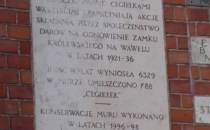 CEGIEŁKAMI
AKCJĘ
SKŁADANIA PRZEZ SPOŁECZEŃSTWO
DARÓW NA ODNOWIENIE ZAMKU
KRÓLEWSKIEGO NA WAWELU
W LATACH 1921-36
ILOŚĆ WPŁAT WYNIOSŁA 6329
W MURZE UMIESZCZONO 788
"CEGIEŁEK"
KONSERWACJĘ MURU WYKONANO
W LATACH 1996-98